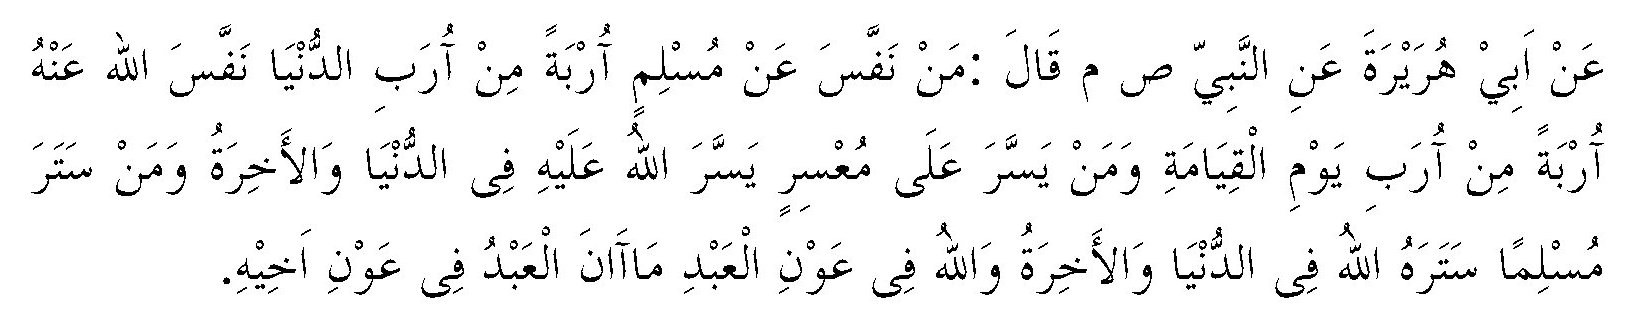 عَنْ اَبِيْ هُرَيْرَةَ عَنِ النَّبِيّ ص م قَالَ :مَنْ نَفَّسَ عَنْ مُسْلِمٍ آُرْبَةً مِنْ آُرَبِ الدُّنْيَا نَفَّسَ الله عَنْهُ
آُرْبَةً مِنْ آُرَبِ يَوْمِ الْقِيَامَةِ وَمَنْ يَسَّرَ عَلَى مُعْسِرٍ يَسَّرَ اللهُ عَلَيْهِ فِى الدُّنْيَا وَالأَخِرَةُ وَمَنْ سَتَرَ
مُسْلِمًا سَتَرَهُ اللهُ فِى الدُّنْيَا وَالأَخِرَةُ وَاللهُ فِى عَوْنِ الْعَبْدِ مَاآَانَ الْعَبْدُ فِى عَوْنِ اَخِيْهِ.